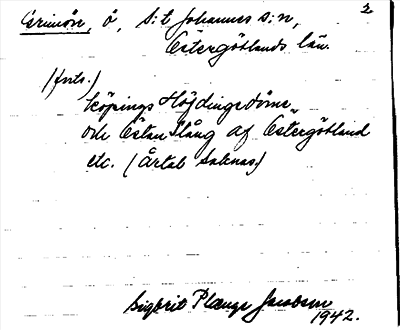 2
Erimön, ö, S:t Johannes s:n,
Östergötlands län.
(forts.)
köpings Höfdingedöme
och Östan Stång af Östergötland
etc. (Årtal saknas)
Sigbrit Plænge Jacobson
1942.